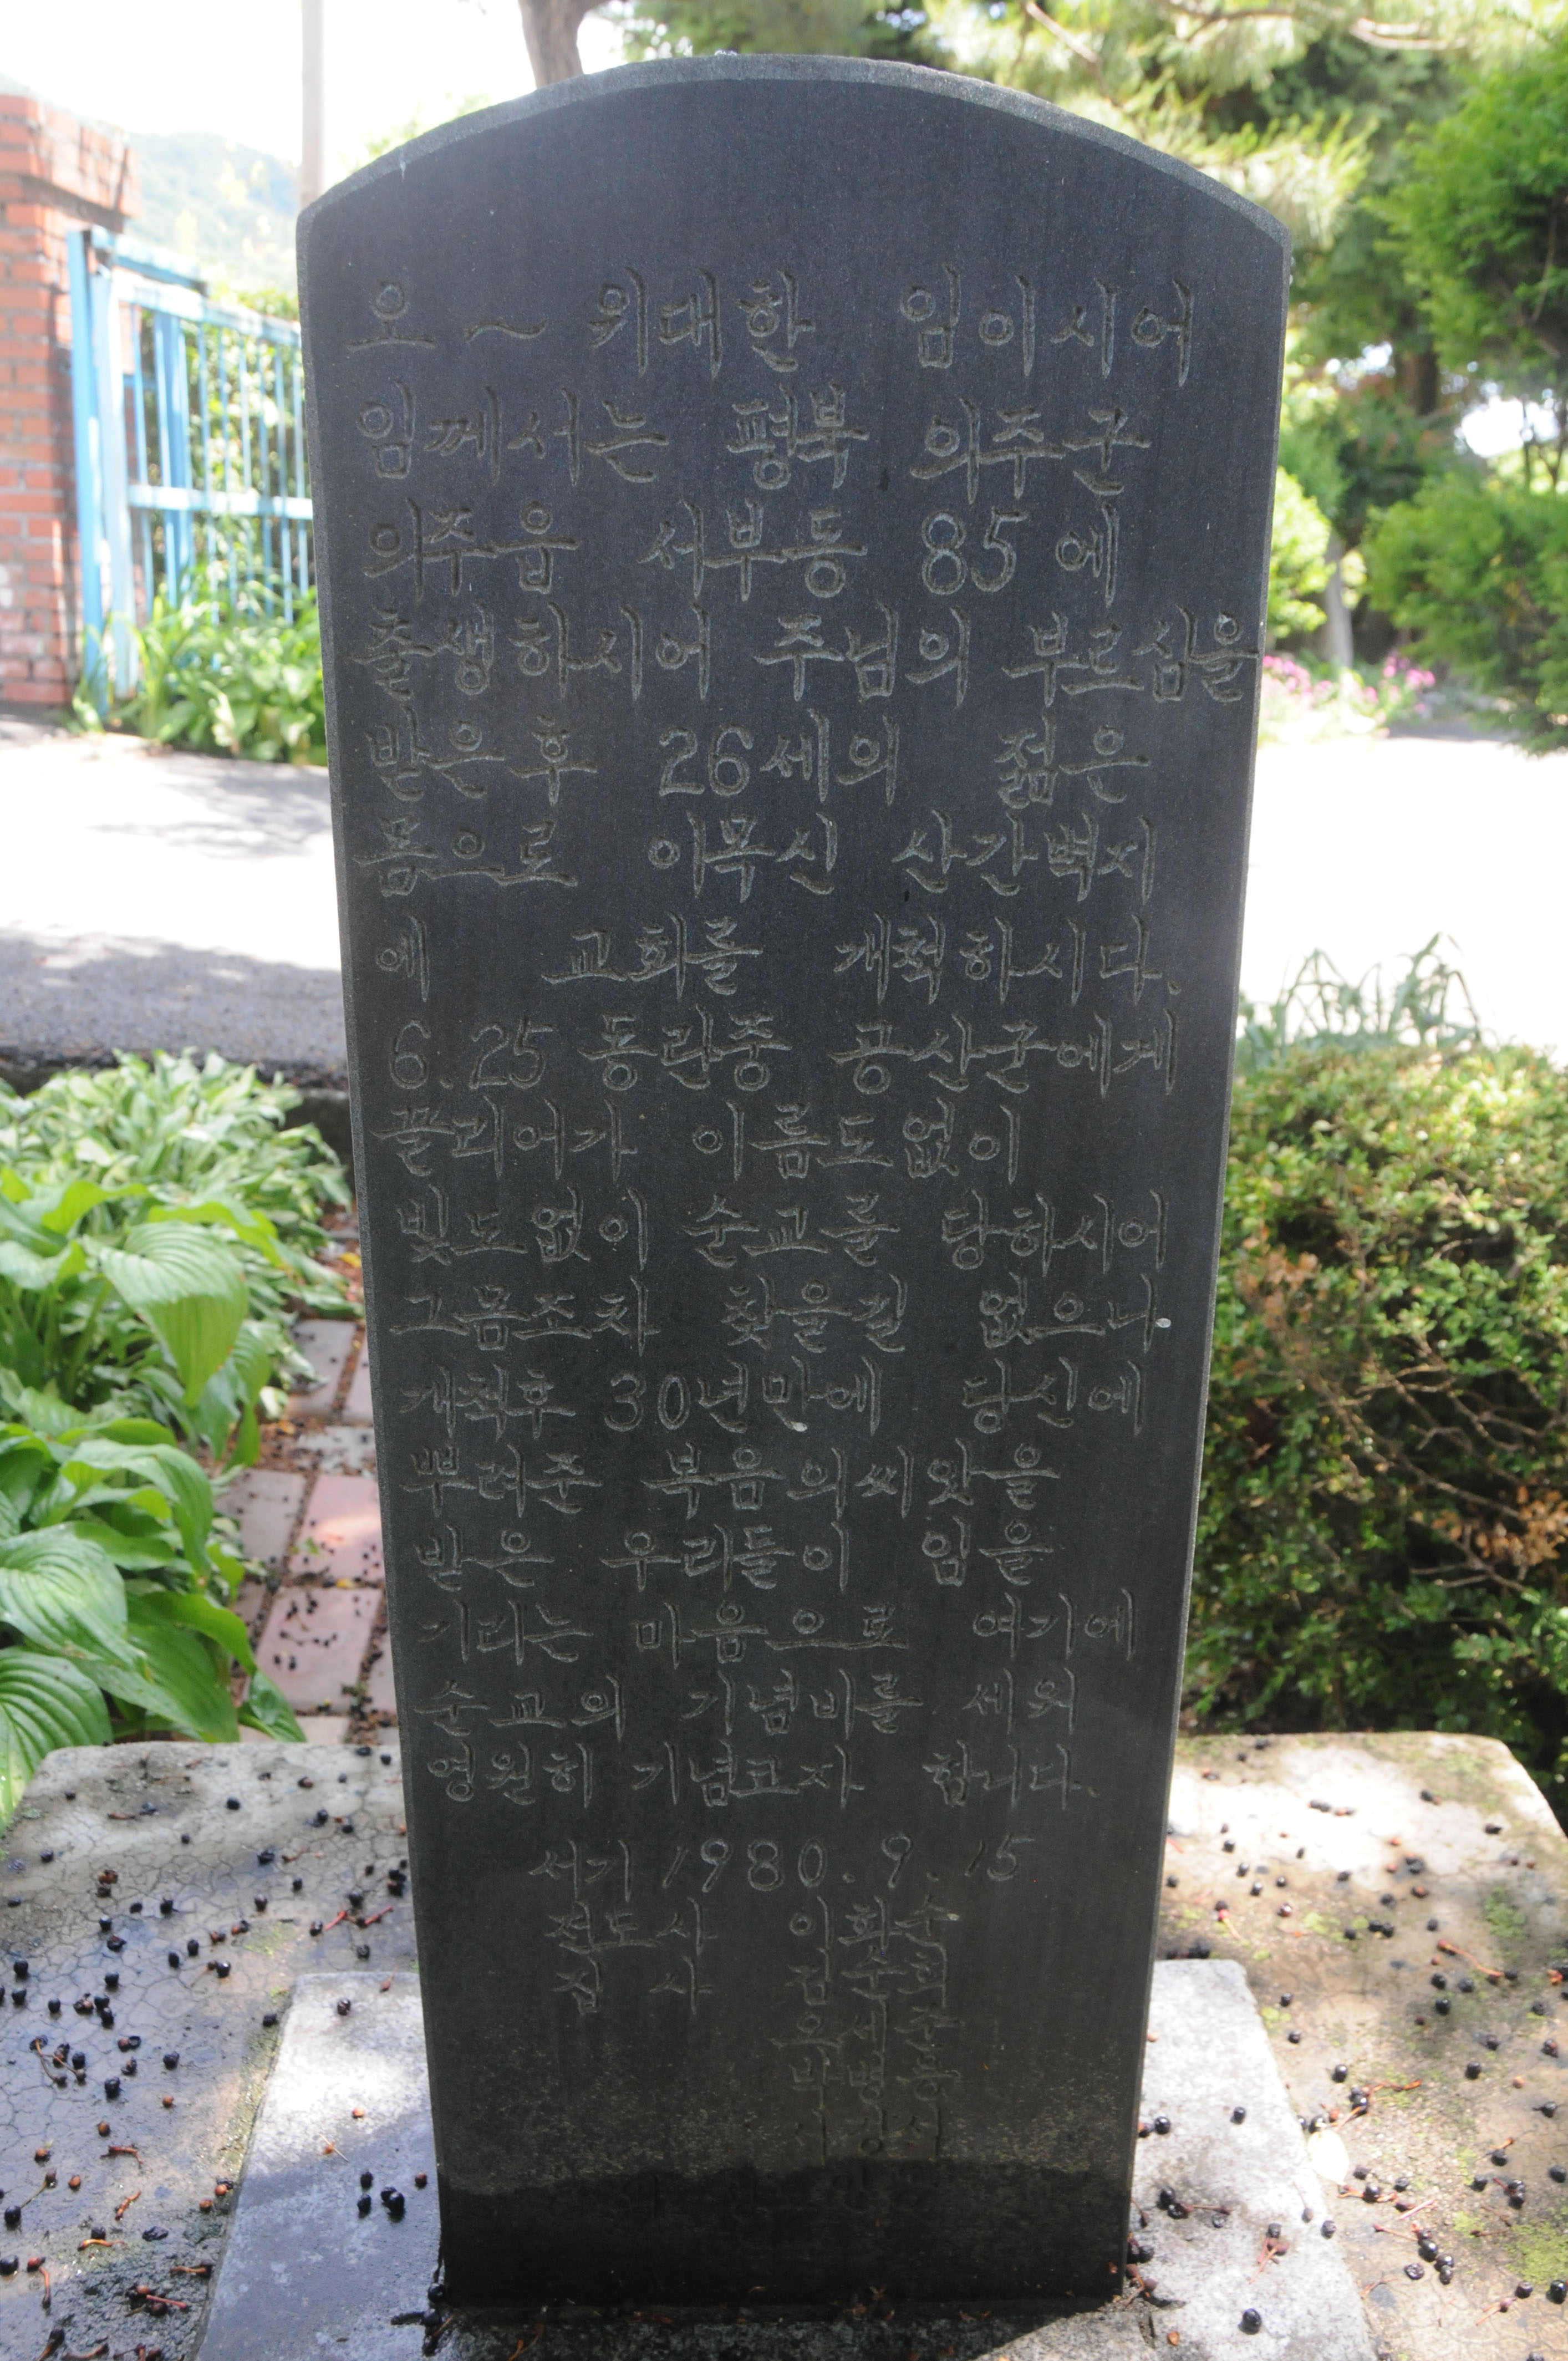 오~ 위대한 임이시어
임께서는 평북 의주군
의주읍 서부동 85에
출생하시어 주님의 부르심을
받은후 26세의 젊은
몸으로 이목신 산간벽지
에 교회를 개척하시다.
6.25 동란중 공산군에게
끌리어가 이름도없이
빛도없이 순교를 당하시어
그몸조차 찾을길 없으나
개척후 30년만에 당신에
뿌려준 복음의씨앗을
받은 우리들이 임을
기리는 마음으로 여기에
순교의 기념비를 세워
영원히 기념코자 합니다.
서기 1980. 9. 15
전도사 이화순
집 사 김순희